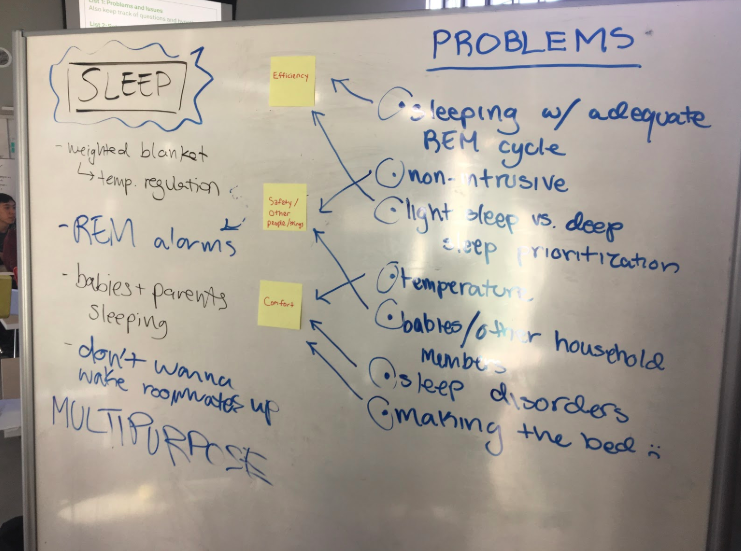 List 1: Problems and issues
PROBLEMS
SLEEP
- weighted blanket
↳ temp. regulation
- REM alarms
- babies + parents
sleeping
- don't wanna
wake roommates up
MULTIPURPOSE
Efficiency
Safety/
other
people/things
Comfort
sleeping w/ adequate
REM cycle
non-intrusive
light sleep vs. deep
sleep prioritization
temperature
babies/other household
members
sleep disorders
making the bed :(